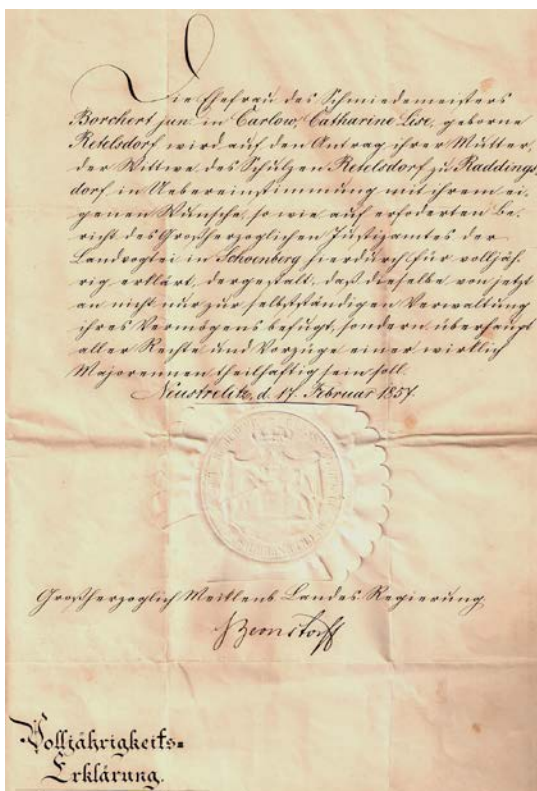 Die Ehefrau des Schmiedemeisters
Borchert jun. in Carlow, Catharine Lise, geborne
Retelsdorf wird auf den Antrag ihrer Mutter,
der Wittwe des Schulzen Retelsdorf zu Raddings,
dorf in Uebereinstimmung mit ihrem ei,
genen Wunsche, so wie auf erforderten Be,
richt des Großherzoglichen Justizamtes der
Landvogtei in Schoenberg hierdurch für volljäh,
rig erklärt, dergestalt, daß dieselbe von jetzt
an nicht nur zur selbstständigen Verwaltung
ihres Vermögens befugt, sondern überhaupt
aller Rechte und Vorzüge einer wirklich
Majorennen theilhaftig sein soll.
Neustrelitz, d. 17. Februar 1857.
Großherzoglich Mecklenb. Landes-Regierung.
Bernstorff
Volljährigkeits=
Erklärung.